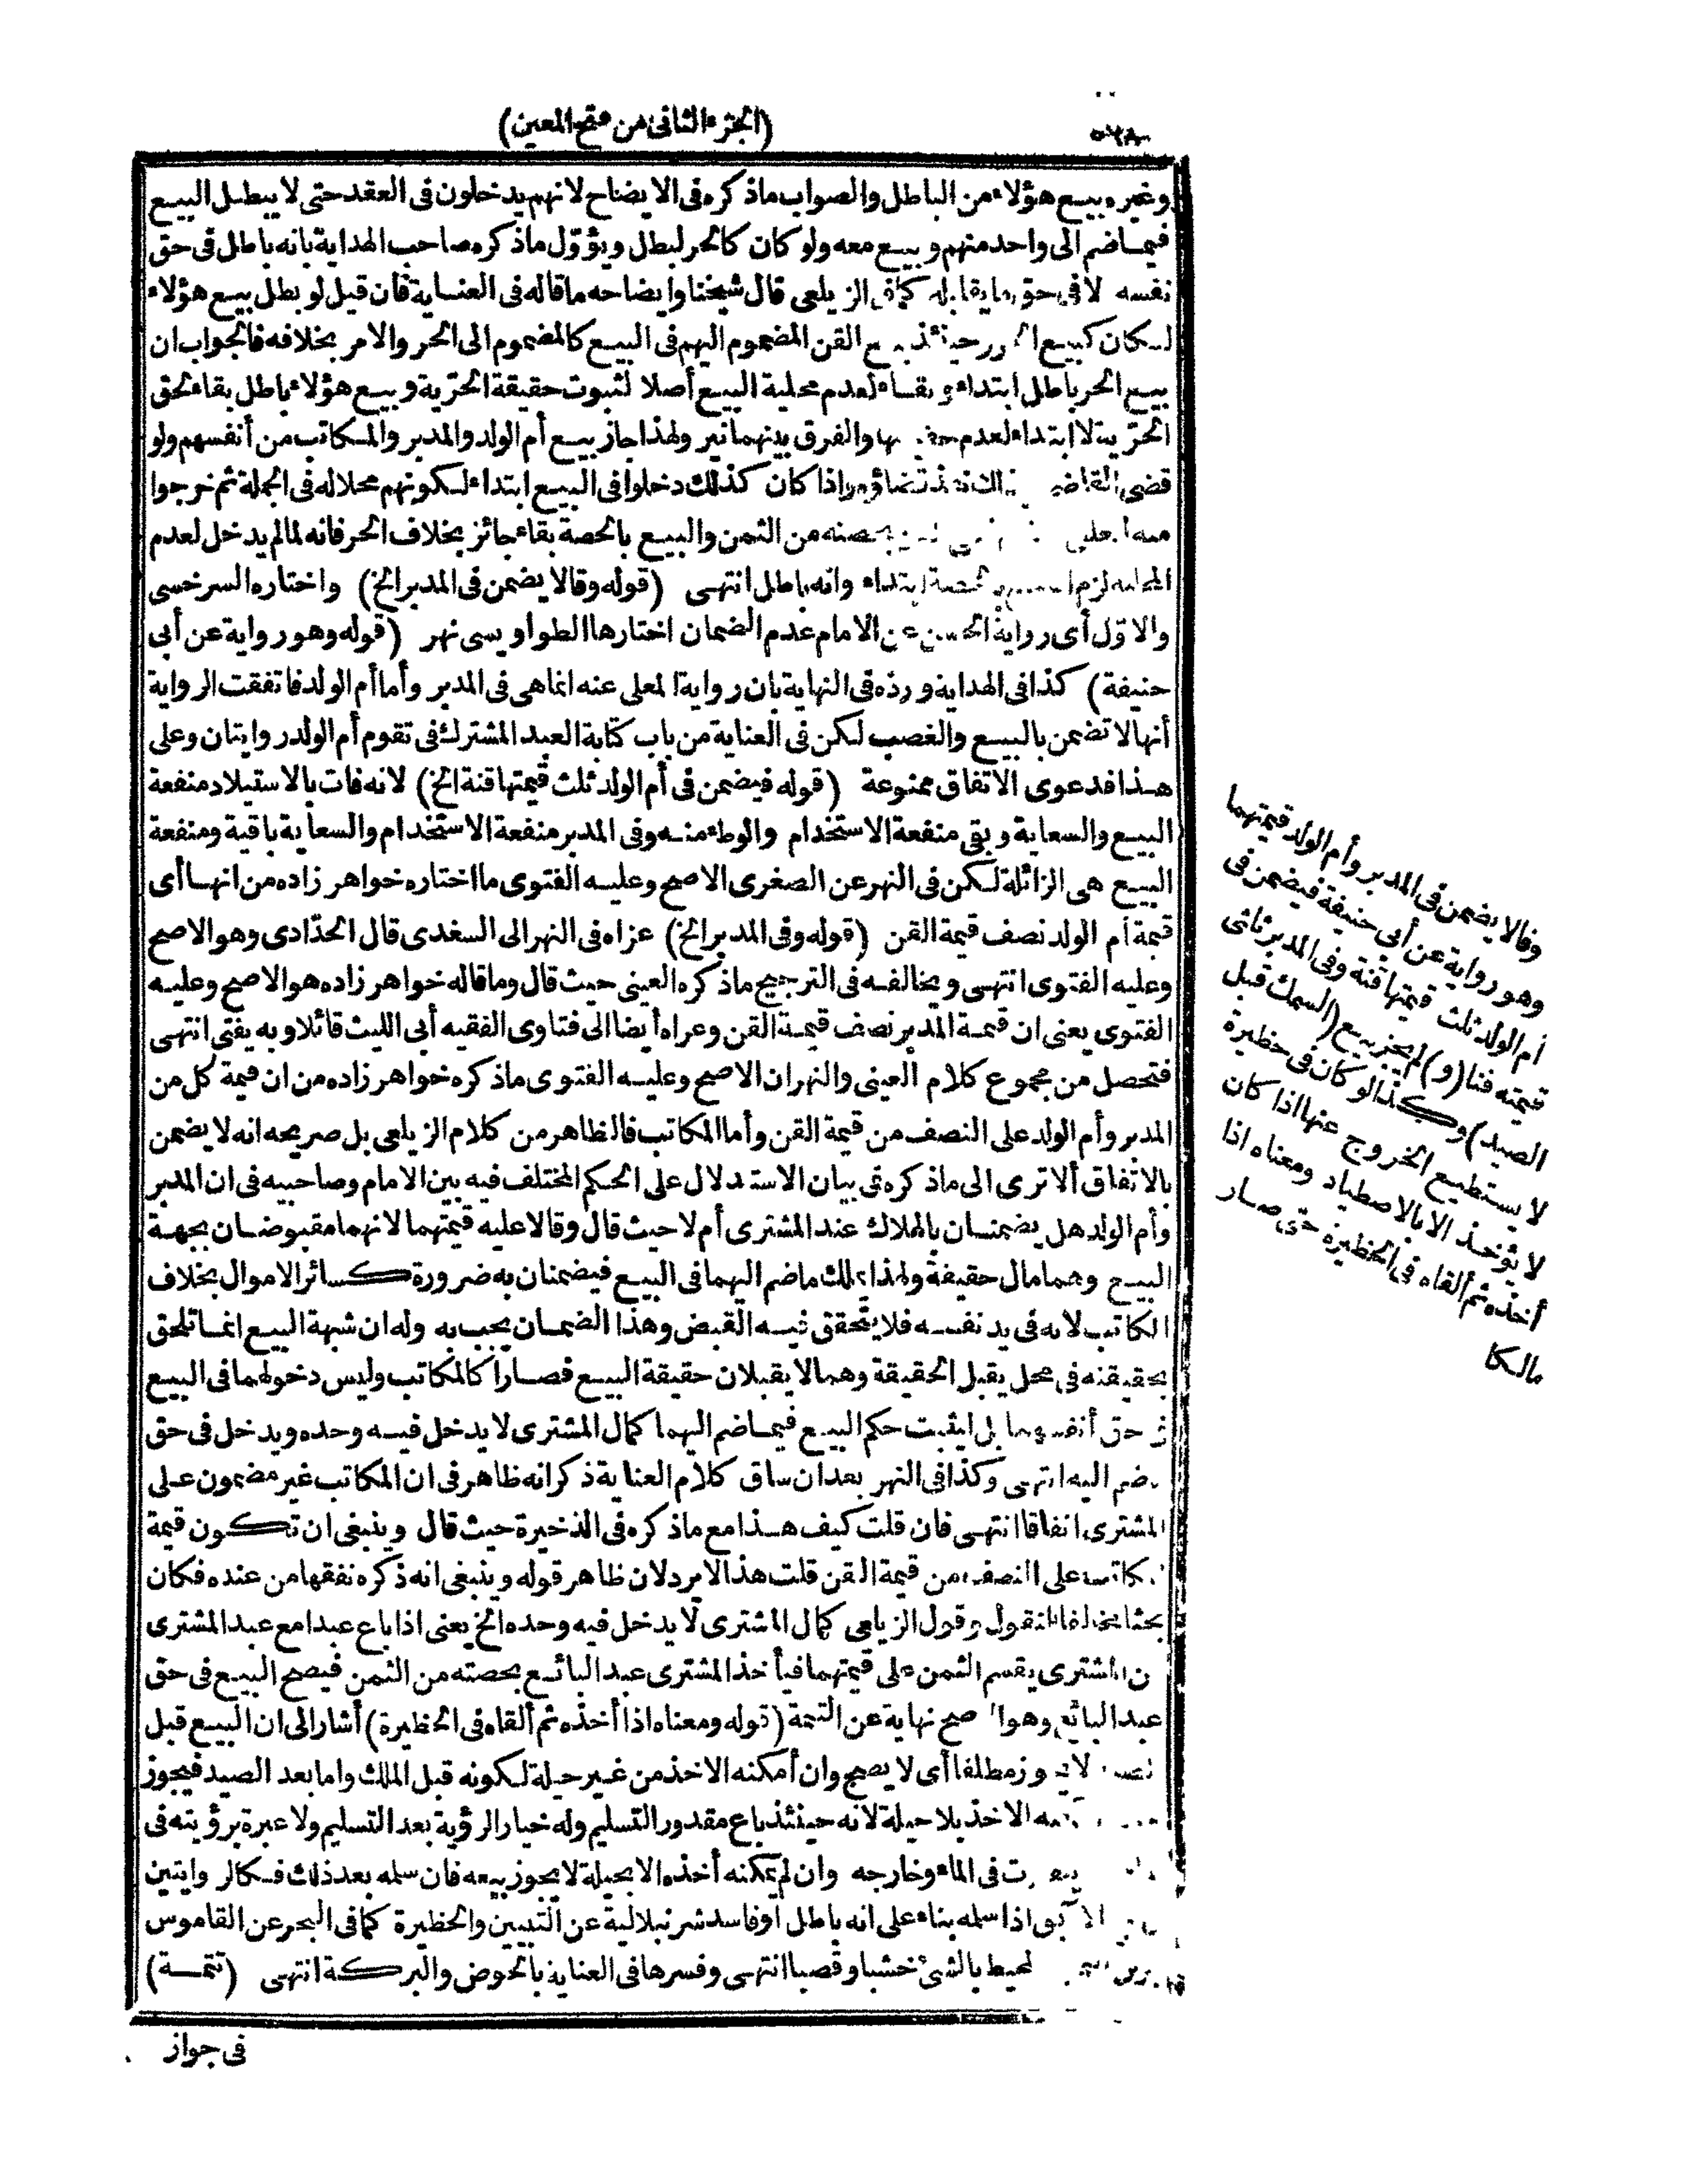 (الجزء الثانى من فتح المعين)
وغيره بيع هؤلاء من الباطل والصواب ماذكره فى الايضاح لانهم يدخلون فى العقد حتى لا يبطل البيع
فيما ضم الى واحد منهم وبيع معه ولو كان كالحر لبطل ويؤوّل ماذكره صاحب الهداية بانه باطل فى حق
نفسه لا فى حق ما يقابله كما فى الزيلعى قال شيخنا وايضاحه ما قاله فى العناية فان قيل لو بطل بيع هؤلاء
لكان كبيع الحر وحينئذ بيع القن المضموم اليهم فى البيع كالمضموم الى الحر والامر بخلافه فالجواب ان
بيع الحر باطل ابتداء وبقاء لعدم محلية البيع أصلا لثبوت حقيقة الحرّية وبيع هؤلاء باطل بقاء لحق
الحرّية لا ابتداء لعدم والفرق بينهما نير ولهذا جاز بيع أم الولد والمدبر والمكاتب من أنفسهم ولو
قضى القاضى نفذ قضاؤه واذا كان كذلك دخلوا فى البيع ابتداء لكونهم محلا له فى الجملة ثم خرجوا
منه بحصته من الثمن والبيع بالحصة بقاء جائز بخلاف الحر فانه لما لم يدخل لعدم
المحلية لزم ابتداء وانه باطل انتهى (قوله وقالا يضمن فى المدبر الخ) واختاره السرخسى
والاوّل أى رواية الحسن عن الامام عدم الضمان اختارها الطواويسى نهر (قوله وهو رواية عن أبى
حنيفة) كذا فى الهداية وردّه فى النهاية بان رواية المعلى عنه انما هى فى المدبر وأما أم الولد فاتفقت الرواية
أنها لا تضمن بالبيع والغصب لكن فى العناية من باب كتابة العبد المشترك فى تقوم أم الولد روايتان وعلى
هذا فدعوى الاتفاق ممنوعة (قوله فيضمن فى أم الولد ثلث قيمتها قنة الخ) لانه فات بالاستيلاد منفعة
البيع والسعاية وبقى منفعة الاستخدام والوطء منه وفى المدبر منفعة الاستخدام والسعاية باقية ومنفعة
البيع هى الزائلة لكن فى النهر عن الصغرى الاصح وعليه الفتوى ما اختاره خواهر زاده من انها أى
قيمة أم الولد نصف قيمة القن (قوله وفى المدبر الخ) عزاه فى النهر الى السغدى قال الحدّادى وهو الاصح
وعليه الفتوى انتهى ويخالفه فى الترجيح ماذكره العينى حيث قال وما قاله خواهر زاده هو الاصح وعليه
الفتوى يعنى ان قيمة المدبر نصف قيمة القن وعزاه أيضا الى فتاوى الفقيه أبى الليث قائلا وبه يفتى انتهى
فتحصل من مجموع كلام العينى والنهر ان الاصح وعليه الفتوى ماذكره خواهر زاده من ان قيمة كل من
المدبر وأم الولد على النصف من قيمة القن وأما المكاتب فالظاهر من كلام الزيلعى بل صريحه انه لا يضمن
بالاتفاق ألا ترى الى ماذكره فى بيان الاستدلال على الحكم المختلف فيه بين الامام وصاحبيه فى ان المدبر
وأم الولد هل يضمنان بالهلاك عند المشترى أم لا حيث قال وقالا عليه قيمتهما لانهما مقبوضان بجهة
البيع وهما مال حقيقة ولهذا يملك ماضم اليهما فى البيع فيضمنان به ضرورة كسائر الاموال بخلاف
المكاتب لانه فى يد نفسه فلا يتحقق فيه القبض وهذا الضمان يجب به وله ان شبهة البيع انما تلحق
بحقيقته فى محل يقبل الحقيقة وهما لا يقبلان حقيقة البيع فصارا كالمكاتب وليس دخولهما فى البيع
فى حق أنفسهما بل ليثبت حكم البيع فيما ضم اليهما كمال المشترى لا يدخل فيه وحده ويدخل فى حق
ضم اليه انتهى وكذا فى النهر بعد ان ساق كلام العناية ذكر انه ظاهر فى ان المكاتب غير مضمون على
المشترى اتفاقا انتهى فان قلت كيف هذا مع ماذكره فى الذخيرة حيث قال وينبغى ان تكون قيمة
المكاتب على النصف من قيمة القن قلت هذا لا يرد لان ظاهر قوله وينبغى انه ذكره تفقها من عنده فكان
بحثا مخالفا للمنقول وقول الزيلعى كمال المشترى لا يدخل فيه وحده الخ يعنى اذا باع عبدا مع عبد المشترى
من المشترى يقسم الثمن على قيمتهما فيأخذ المشترى عبد البائع بحصته من الثمن فيصح البيع فى حق
عبد البائع وهو الاصح نهاية عن التتمة (قوله ومعناه اذا أخذه ثم ألقاه فى الحظيرة) أشار الى ان البيع قبل
لا يجوز مطلقا أى لا يصح وان أمكنه الاخذ من غير حيلة لكونه قبل الملك واما بعد الصيد فيجوز
الاخذ بلا حيلة لانه حينئذ باع مقدور التسليم وله خيار الرؤية بعد التسليم ولا عبرة برؤيته فى
فى الماء وخارجه وان لم يمكنه أخذه الا بحيلة لا يجوز بيعه فان سلمه بعد ذلك فكالروايتين
الآبق اذا سلمه بناء على انه باطل أو فاسد شرنبلالية عن التبيين والحظيرة كما فى البحر عن القاموس
المحيط بالشىء خشبا وقصبا انتهى وفسرها فى العناية بالحوض والبركة انتهى (تتمة)
فى جواز
وقالا يضمن فى المدبر وأم الولد قيمتهما
وهو رواية عن أبى حنيفة فيضمن فى
أم الولد ثلث قيمتها قنة وفى المدبر ثلثى
قيمته قنا (و) لم يجز بيع (السمك قبل
الصيد) وكذا لو كان فى حظيرة
لا يستطيع الخروج عنها اذا كان
لا يؤخذ الا بالاصطياد ومعناه اذا
أخذه ثم ألقاه فى الحظيرة حتى صار
مالكا